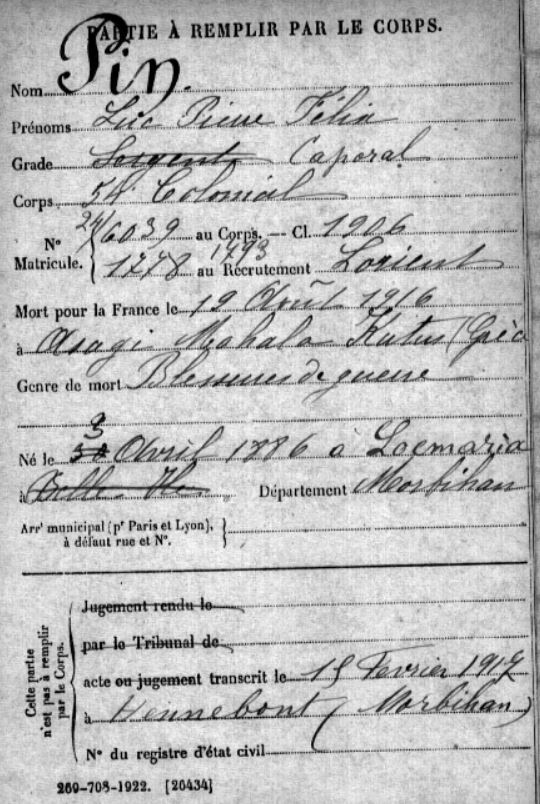 PARTIE À REMPLIR PAR LE CORPS.
Nom Pin.
Prénoms Luc Pierre Félix
Grade Sergent Caporal
Corps 54e Colonial
N° Matricule. { 24/6039 au Corps. — Cl. 1906
1778 1793 au Recrutement Lorient
Mort pour la France le 19 Août 1916
à Asagi Mahala Kutus (Grèc
Genre de mort Blessures de guerre
3
Né le Avril 1886 à Locmaria
à Belle-Ile Département Morbihan
Arrt municipal (pr Paris et Lyon), }
à défaut rue et N°.
Cette partie n'est pas à remplir par le Corps.
Jugement rendu le
par le Tribunal de
acte ou jugement transcrit le 15 Fevrier 1917
à Hennebont (Morbihan)
N° du registre d'état civil
269-708-1922. [26434]